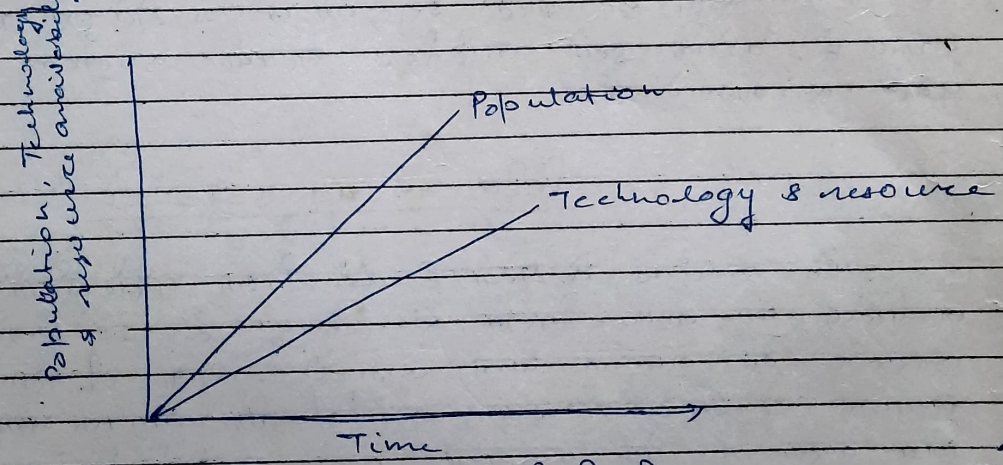 Population, Technology
& resource
Population
Technology & resource
Time